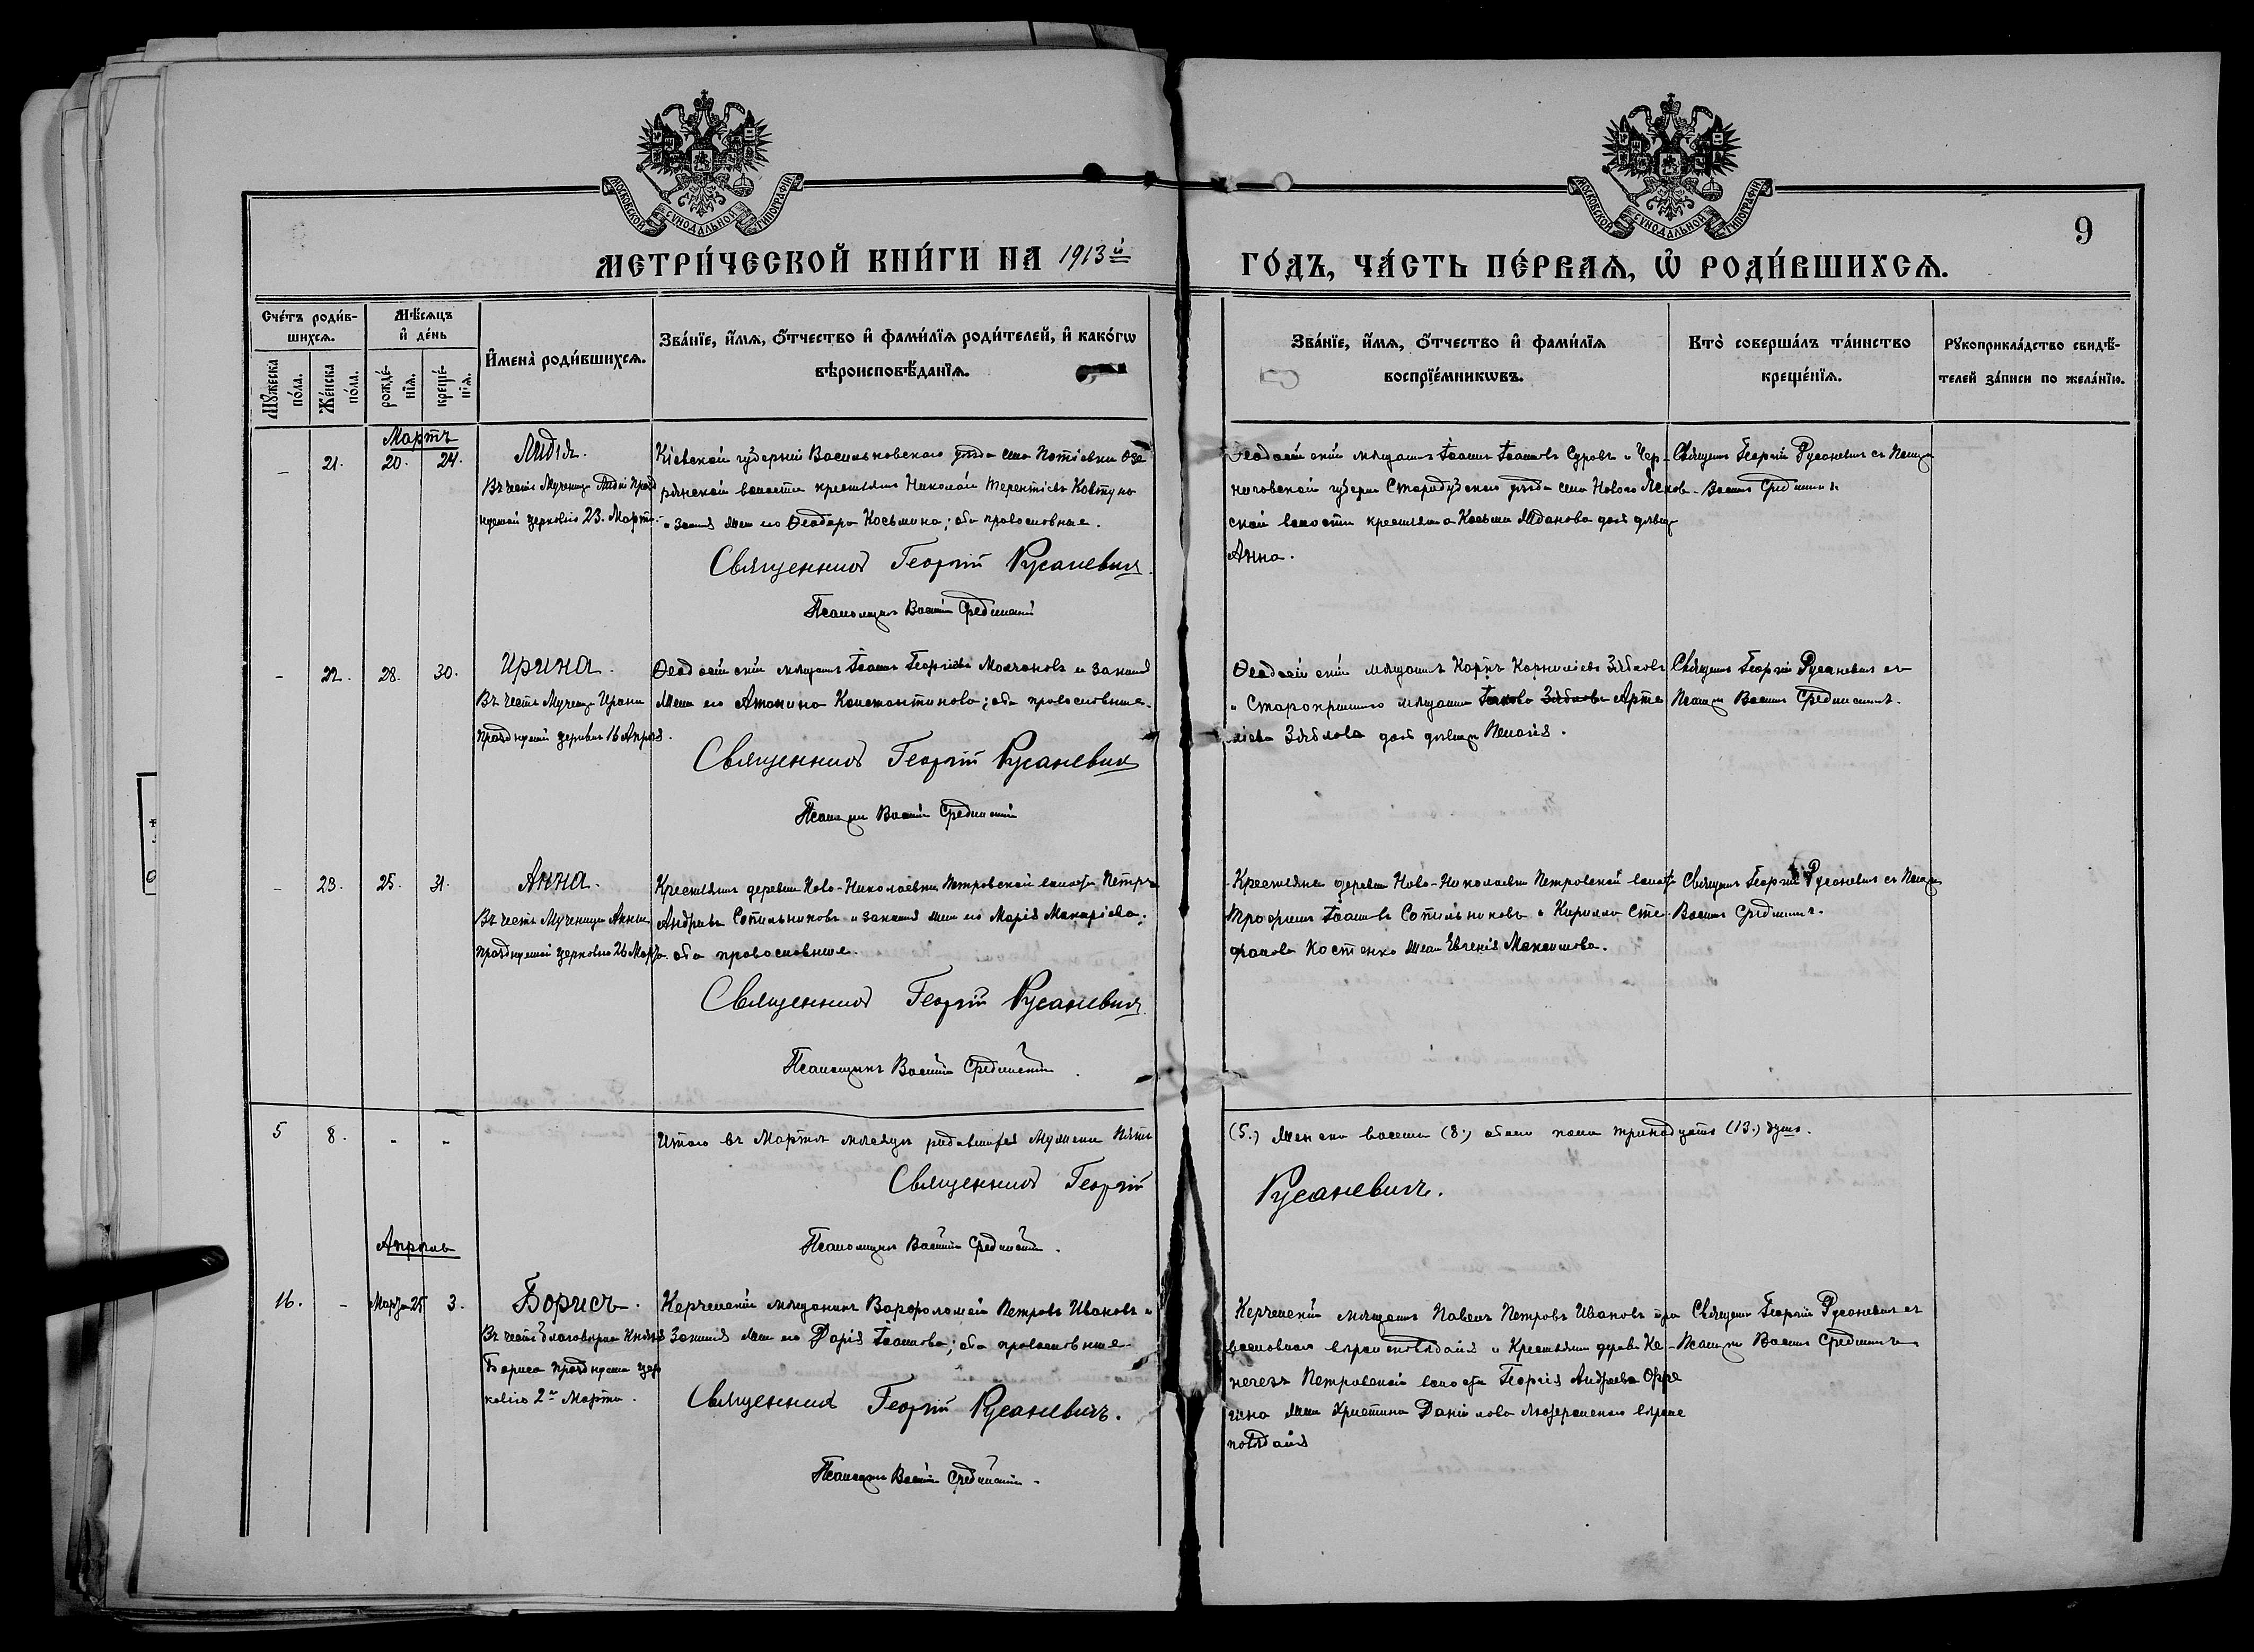 МОСКОВСКОЙ СУНОДАЛЬНОЙ ТИПОГРАФІИ
МОСКОВСКОЙ СУНОДАЛЬНОЙ ТИПОГРАФІИ
9
МЕТРИ́ЧЕСКОЙ КНИ́ГИ НА 1913й
ГО́ДЪ, ЧА́СТЬ ПЕ́РВАѦ, Ѡ҆ РОДИ́ВШИХСѦ.
Сче́тъ роди́в-
шихсѧ.
Мꙋ́жеска по́ла.
Же́нска по́ла.
Мѣ́сѧцъ
и҆ де́нь
рожде́-
нїѧ.
креще́-
нїѧ.
И҆мена̀ роди́вшихсѧ.
Зва́нїе, и҆́мѧ, ѻ҆́тчество и҆ фами́лїѧ роди́телей, и҆ како́гѡ
вѣроисповѣ́данїѧ.
Зва́нїе, и҆́мѧ, ѻ҆́тчество и҆ фами́лїѧ
воспрїе́мникѡвъ.
Кто̀ соверша́лъ та́инство
креще́нїѧ.
Рꙋкоприкла́дство свидѣ́-
телей за́писи по жела́нїю.
Мартъ
- 21. 20. 24.
Лидія.
Въ честь Мученицы Лидіи празд
нуемой церковію 23. Марта.
Кіевской губерніи Васильковскаго уѣзда села Потіевки Озе
рянской волости крестьянинъ Николай Терентіевъ Ковтуно
и законная жена его Ѳеодора Косьмина; оба православные.
Священникъ Георгій Русаневичъ.
Псаломщикъ Василій Срединскій
Ѳеодосійскій мѣщанинъ Іоаннъ Іоанновъ Суровъ и Чер-
ниговской губерніи Стародубскаго уѣзда села Новаго
ской волости крестьянина Косьмы Жданова дочь дѣвица
Анна.
Священникъ Георгій Русаневичъ съ Псаломщ
Василіемъ Срединскимъ
- 22. 28. 30.
Ирина.
Въ честь Мученицы Ирины
празднуемой церковію 16 Апрѣля.
Ѳеодосійскій мѣщанинъ Іоаннъ Георгіевъ Молчановъ и законная
жена его Антонина Константинова; оба православные.
Священникъ Георгій Русаневичъ
Псаломщикъ Василій Срединскій
Ѳеодосійскій мѣщанинъ Карпъ Корниліевъ Зябловъ
и Старокрымскаго мѣщанина Арте
міева Зяблова дочь дѣвица Пелагія.
Священникъ Георгій Русаневичъ съ
Псаломщ Василіемъ Срединскимъ.
- 23. 25. 31.
Анна.
Въ честь Мученицы Анны
празднуемой церковію 26 Марта.
Крестьянинъ деревни Ново-Николаевки Петровской волости Петръ
Андреевъ Сотильниковъ и законная жена его Марія Макаріева;
оба православные.
Священникъ Георгій Русаневичъ.
Псаломщикъ Василій Срединскій.
Крестьяне деревни Ново-Николаевки Петровской волости
Трофимъ Іоанновъ Сотильниковъ и Кирилла Сте-
фанова Костенко жена Евгенія Максимова.
Священникъ Георгій Русаневичъ съ Псаломщ
Василіемъ Срединскимъ.
5 8. - -
Итого въ Мартѣ мѣсяцѣ родившихся мужеска пять
(5.) женска восемь (8.) обоего пола тринадцать (13.) душъ.
Священникъ Георгій
Русаневичъ.
Псаломщикъ Василій Срединскій.
Апрѣль
16. - Марта 25 3.
Борисъ.
Въ честь благовѣрнаго Князя
Бориса празднуема цер
ковію 2го Марта.
Керченскій мѣщанинъ Варѳоломей Петровъ Ивановъ и
законная жена его Дарія Іоаннова; оба православные.
Священникъ Георгій Русаневичъ.
Псаломщикъ Василій Срединскій.
Керченскій мѣщанинъ Павелъ Петровъ Ивановъ пра
вославнаго вѣроисповѣданія и Крестьянина деревни Ке-
негезъ Петровской волости Георгія Андреева
жена Христина Даніилова лютеранскаго вѣроис
повѣданія
Священникъ Георгій Русаневичъ съ
Псаломщ Василіемъ Срединскимъ